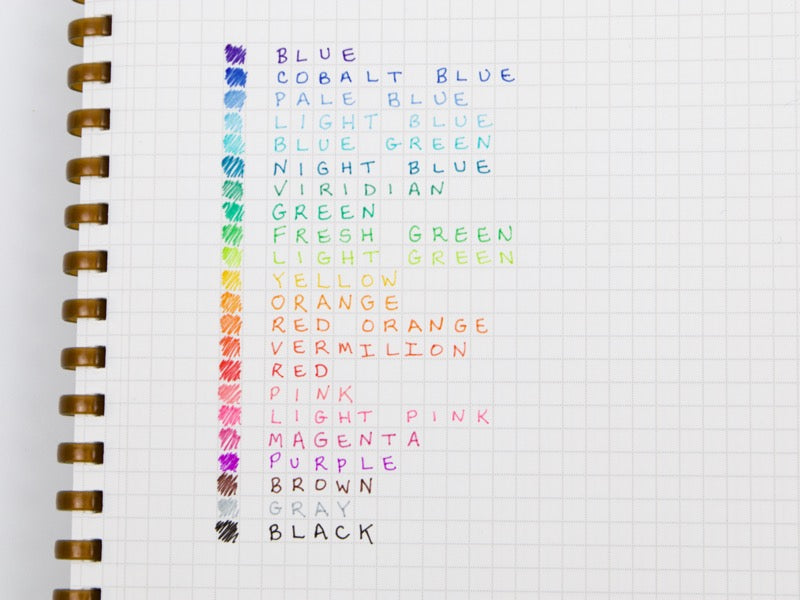 BLUE
COBALT BLUE
PALE BLUE
LIGHT BLUE
BLUE GREEN
NIGHT BLUE
VIRIDIAN
GREEN
FRESH GREEN
LIGHT GREEN
YELLOW
ORANGE
RED ORANGE
VERMILION
RED
PINK
LIGHT PINK
MAGENTA
PURPLE
BROWN
GRAY
BLACK